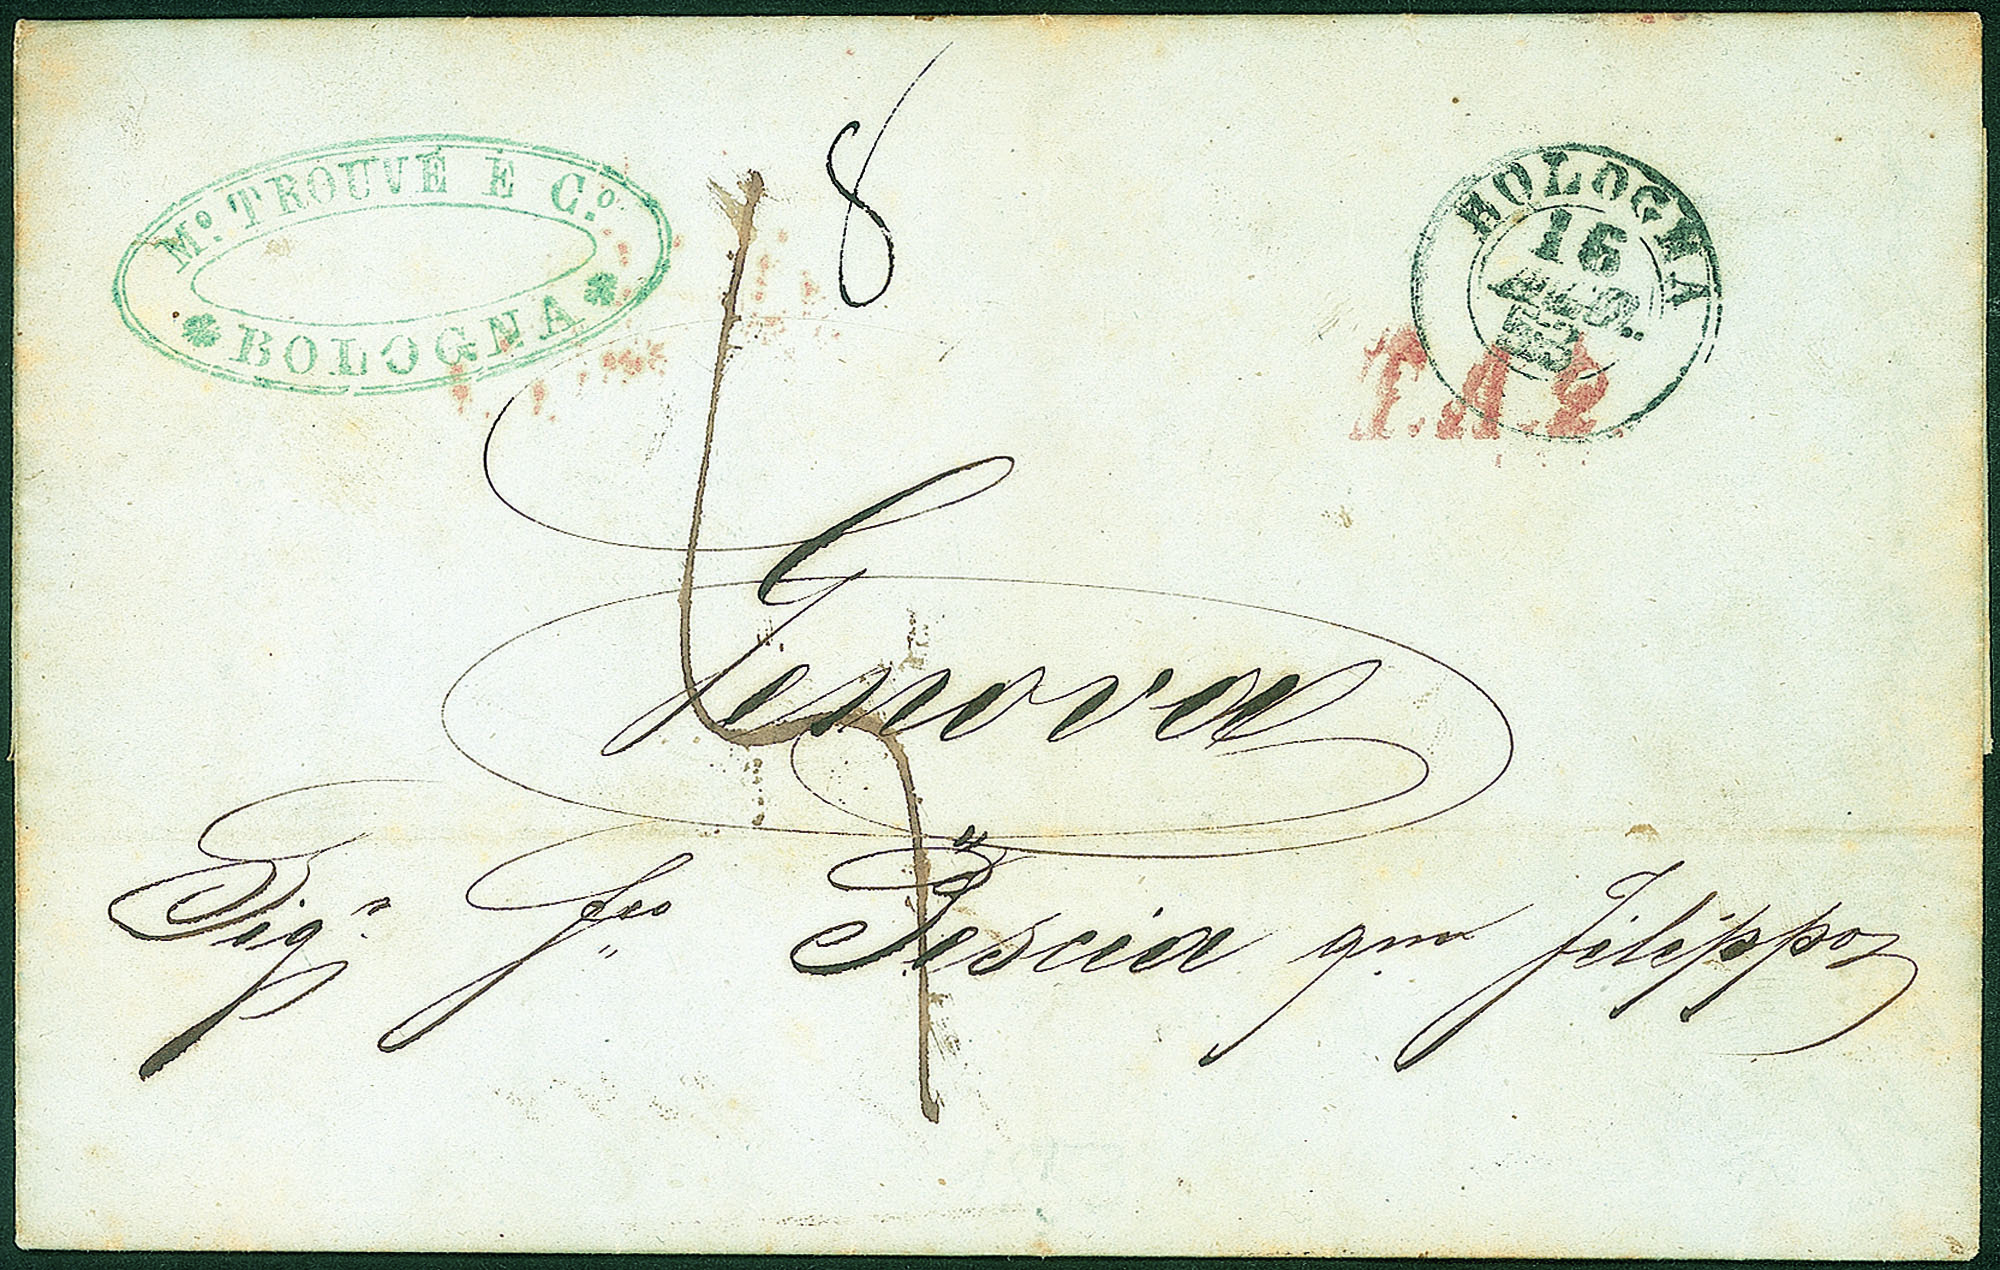 Mo. TROUVÉ E Co.
BOLOGNA
8
BOLOGNA
16
53
T.A.2.
Genova
Sigr. Fco Pescia qm Filippo